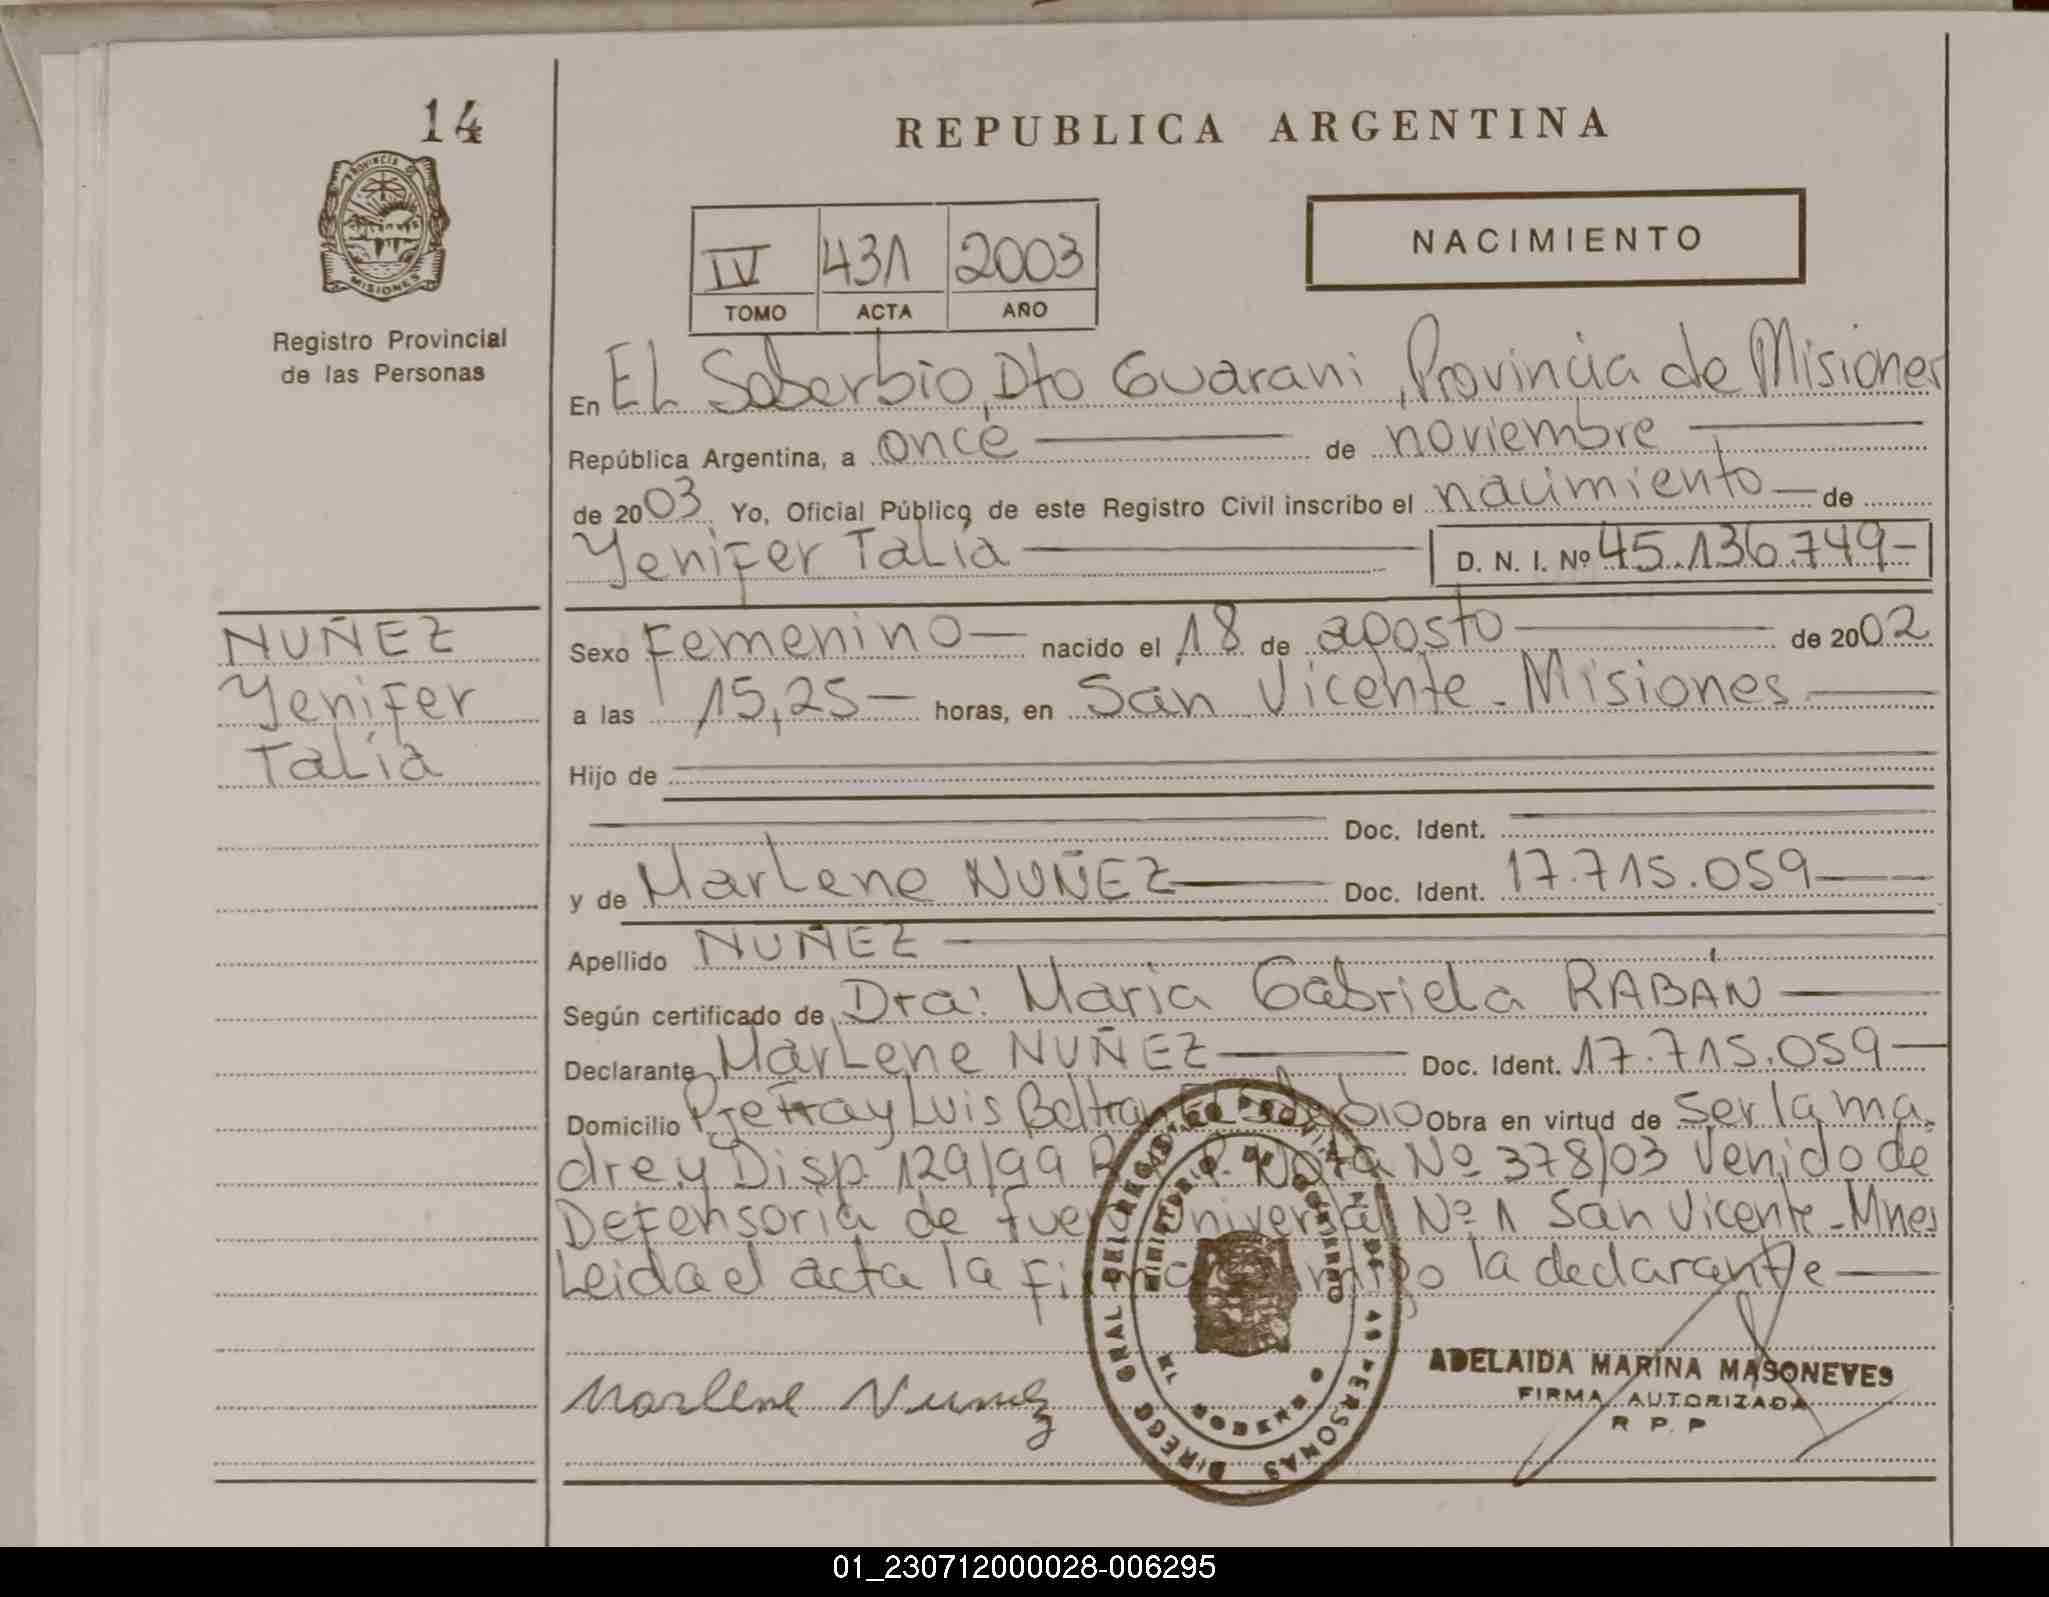 14
PROVINCIA DE
MISIONES
Registro Provincial
de las Personas
REPUBLICA ARGENTINA
IV 431 2003
TOMO ACTA AÑO
NACIMIENTO
En EL Soberbio, Dto Guarani, Provincia de Misiones
República Argentina, a once de noviembre
de 2003 Yo, Oficial Público de este Registro Civil inscribo el nacimiento de
Yenifer Talía D. N. I. Nº 45.136.749-
NUÑEZ
Yenifer
Talía
Sexo Femenino nacido el 18 de agosto de 2002
a las 15,25 horas, en San Vicente - Misiones
Hijo de
Doc. Ident.
y de Marlene NUÑEZ Doc. Ident. 17.715.059
Apellido NUÑEZ
Según certificado de Dra: Maria Gabriela RABÁN
Declarante Marlene NUÑEZ Doc. Ident. 17.715.059
Domicilio Pje Fray Luis Beltran El Soberbio Obra en virtud de ser la ma
dre y Disp. 129/99 Nota Nº 378/03 Venido de
Defensoria de fuero Universal Nº 1 San Vicente - Mnes
Leida el acta la firma conmigo la declarante
Marlene Nuñez
DIRECC GRAL DEL REGISTRO PROVINCIAL DE LAS PERSONAS
MINISTERIO DE GOBIERNO
ADELAIDA MARINA MASONEVES
FIRMA AUTORIZADA
R P. P
01_230712000028-006295